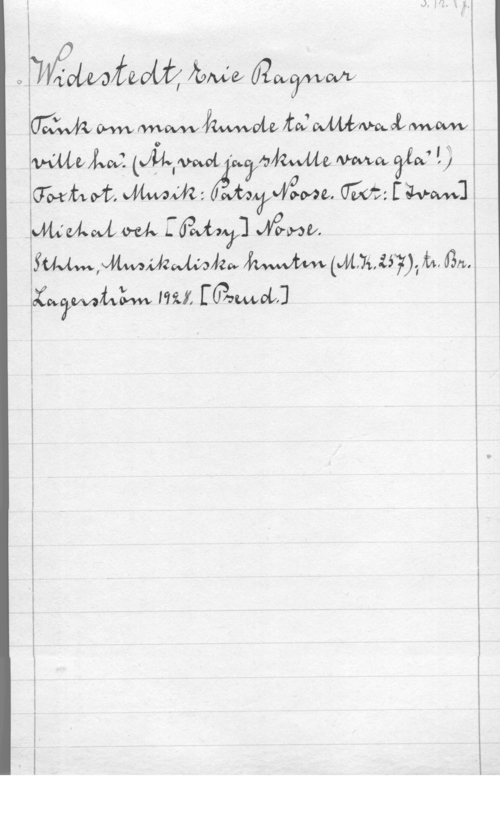 Widestedt, Eric Ragnar
Tänk om man kunde ta' allt vad man
ville ha'. (Åh, vad jag skulle vara gla'!)
Foxtrot. Musik: Patsy Noose. Text: [Ivan]
Michal och [Patsy] Noose.
Sthlm, Musikaliska knuten (M.K. 257); tr. Br.
Lagerström 1928. [Pseud.]